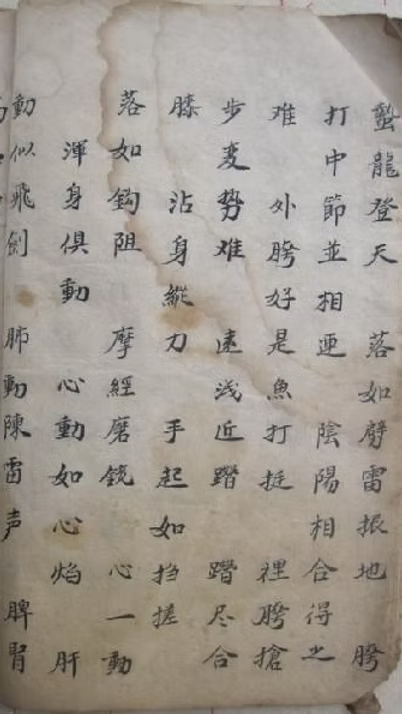 蟄龍登天 落如劈雷振地 胯
打中節並相連 陰陽相合得之
难 外胯好是魚打挺 裡胯搶
步变势难 遠浅近蹓 蹓尽合
膝 沾身縱刀 手起如 搓
落如鈎阻 摩經磨銳 心一動
渾身俱動 心動如心焰 肝
動似飛劍 肺動陳雷声 脾腎